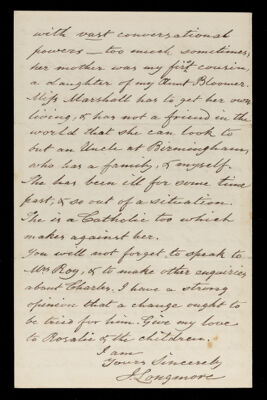 with vast conversational
powers — too much sometimes,
her mother was my first cousin,
a daughter of my Aunt Bloomer.
Miss Marshall has to get her own
living, & has not a friend in the
world that she can look to
but an Uncle at Birmingham,
who has a family, & myself.
She has been ill for some time
past, & so out of a situation.
She is a Catholic too which
makes against her.
You will not forget to speak to
Mrs Roy, & to make other enquiries
about Charles. I have a strong
opinion that a change ought to
be tried for him. Give my love
to Rosalie & the children.
I am
Yours Sincerely
J. Longmore